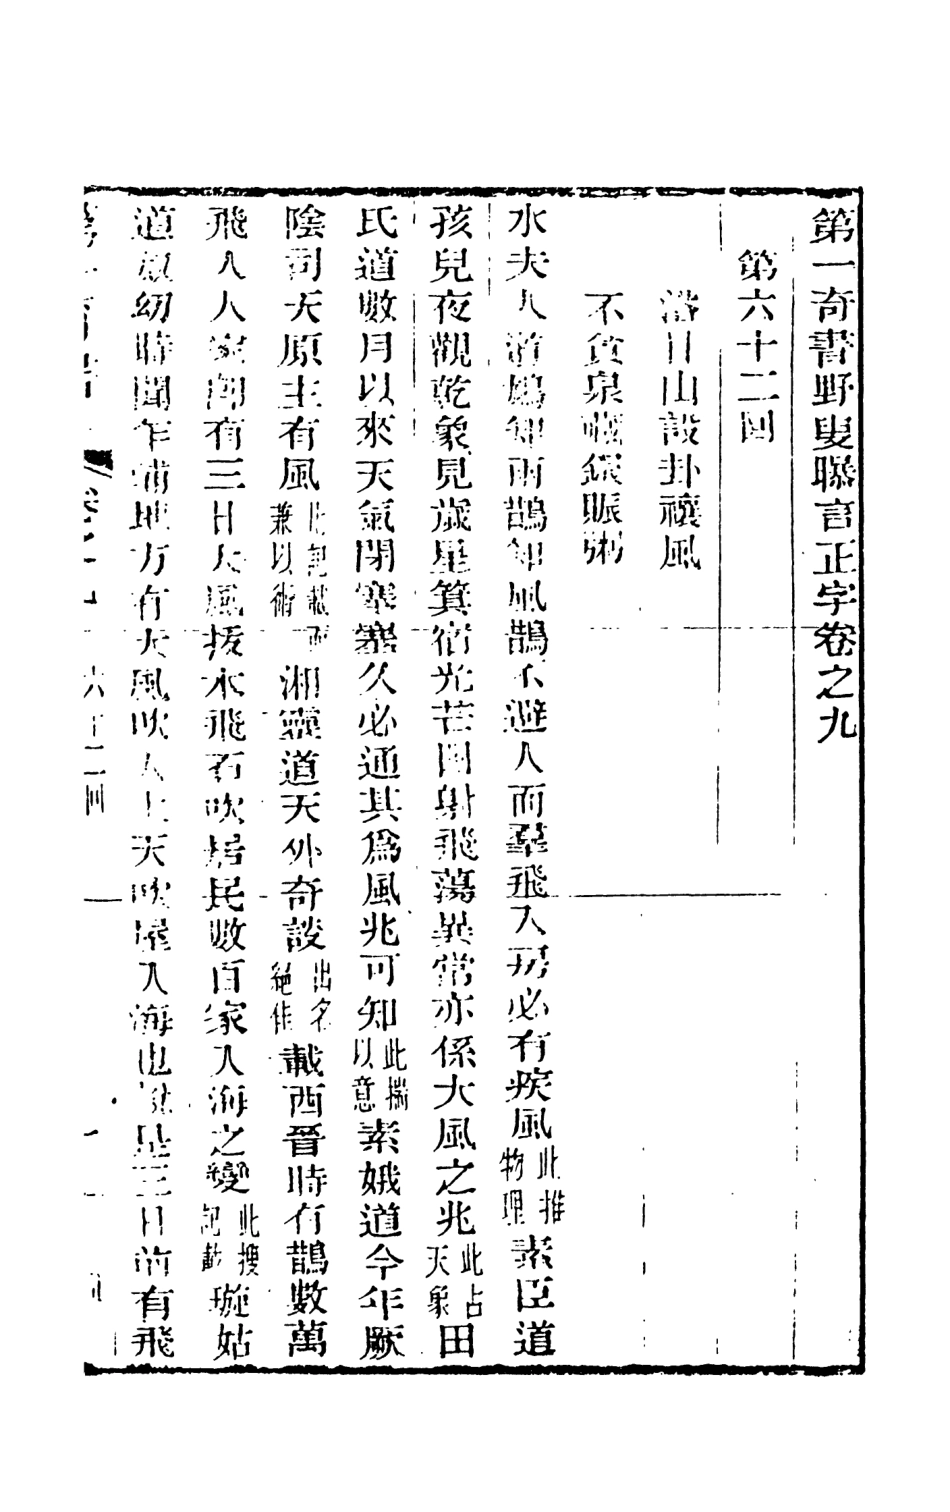 第一奇書野叟曝言正字卷之九
第六十二回
浴日山設卦禳風
不貪泉嚥銀賑粥
水夫人道鳩知雨鵲知風鵲不避人而羣飛入房必有疾風此推物理素臣道
孩兒夜觀乾象見歲星箕宿光芒閃射飛蕩異常亦係大風之兆此占天象田
氏道數月以來天氣閉塞塞久必通其爲風兆可知此揣以意素娥道今年厥
陰司天原主有風此記載而兼以術湘靈道天外奇談出名絶佳載西晉時有鵲數萬
飛入人家閣有三日大風拔木飛石吹居民數百家入海之變此搜記載璇姑
道奴幼時聞乍浦地方有大風吹人上天吹屋入海也說是三日前有飛
第一奇書 卷之九 六十二回 一